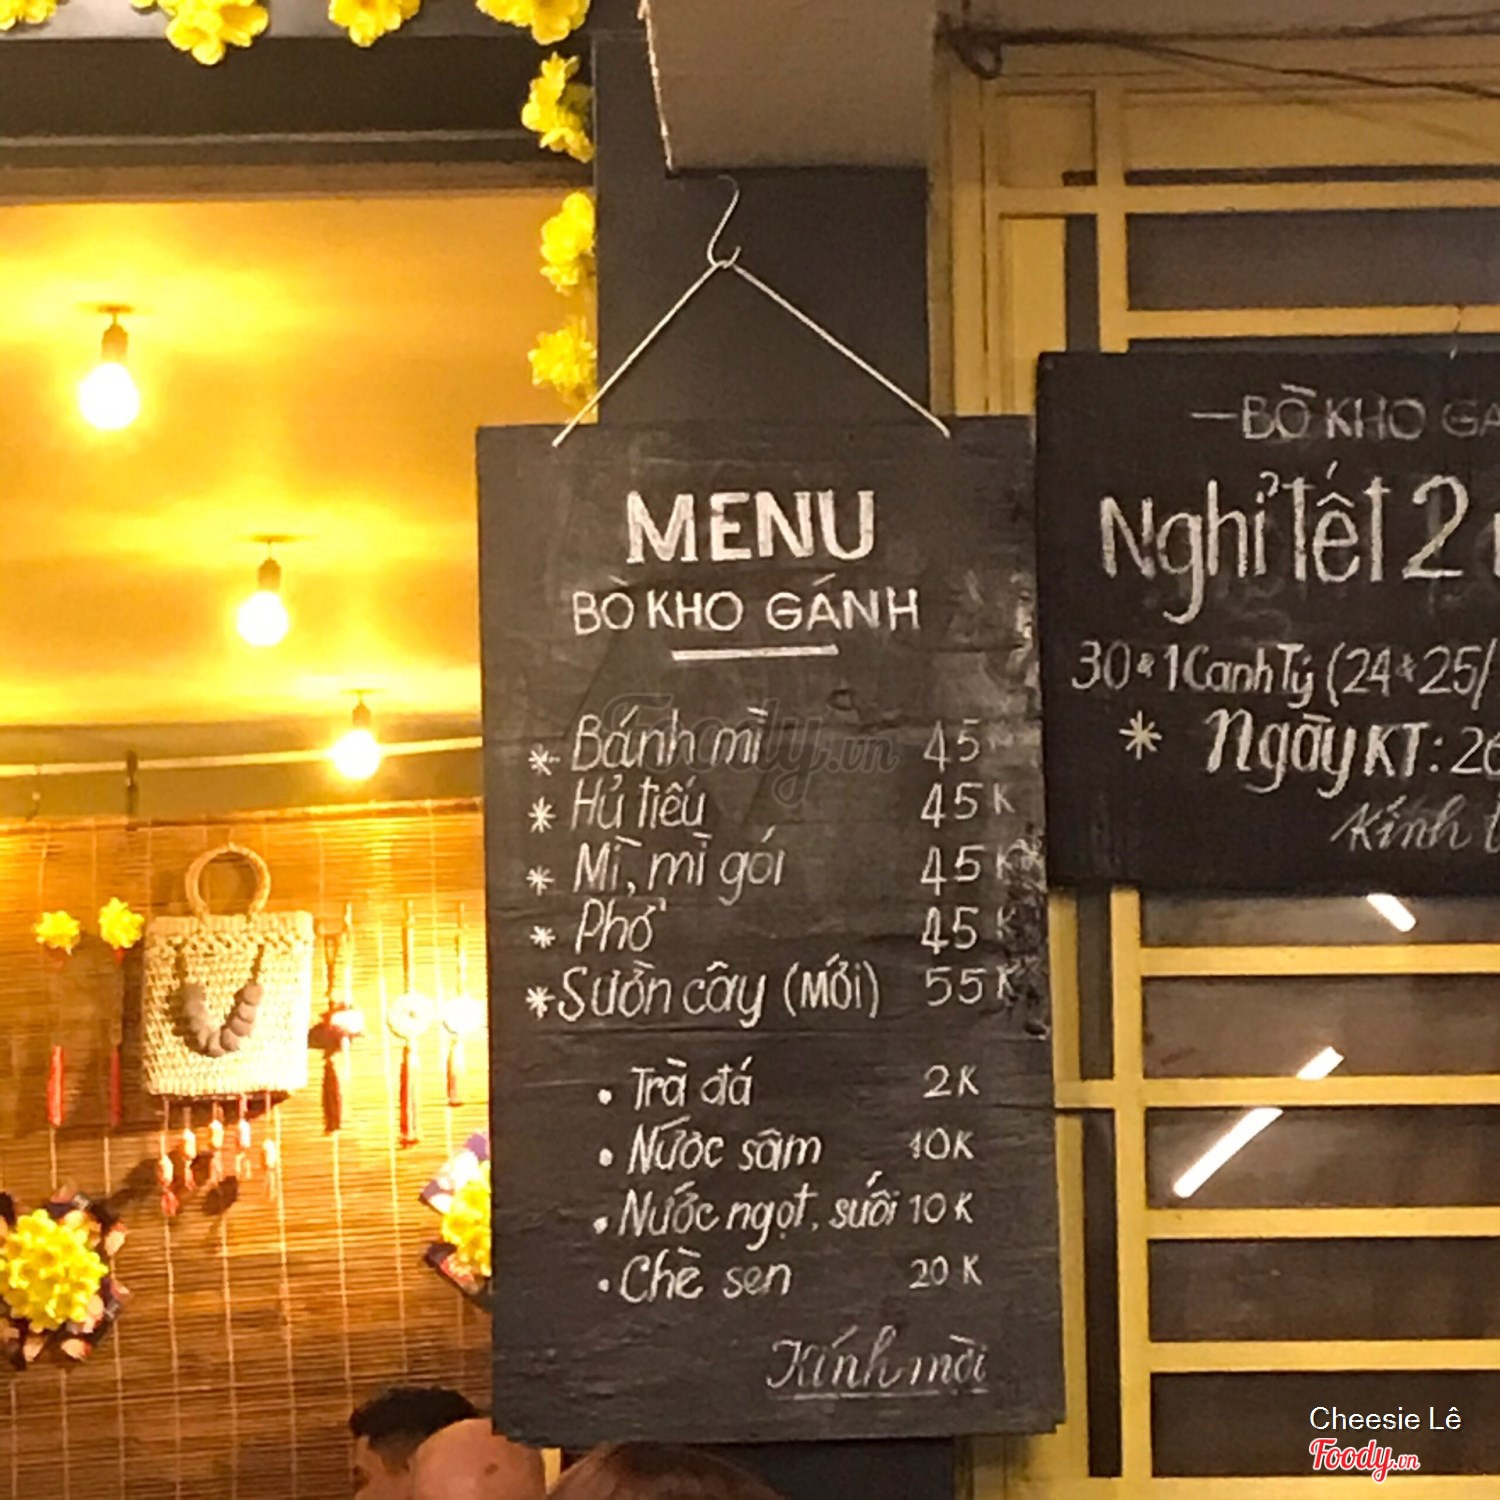 MENU
BÒ KHO GÁNH
* Bánh mì 45
* Hủ tiếu 45K
* Mì, mì gói 45K
* Phở 45K
* Sườn cây (Mới) 55K
• Trà đá 2K
• Nước sâm 10K
• Nước ngọt, suối 10K
• Chè sen 20K
Kính mời
— BÒ KHO
Nghỉ Tết 2
30 & 1 Canh Tý (24 & 25/
* Ngày KT: 26
Kính
Foody.vn
Cheesie Lê
Foody.vn